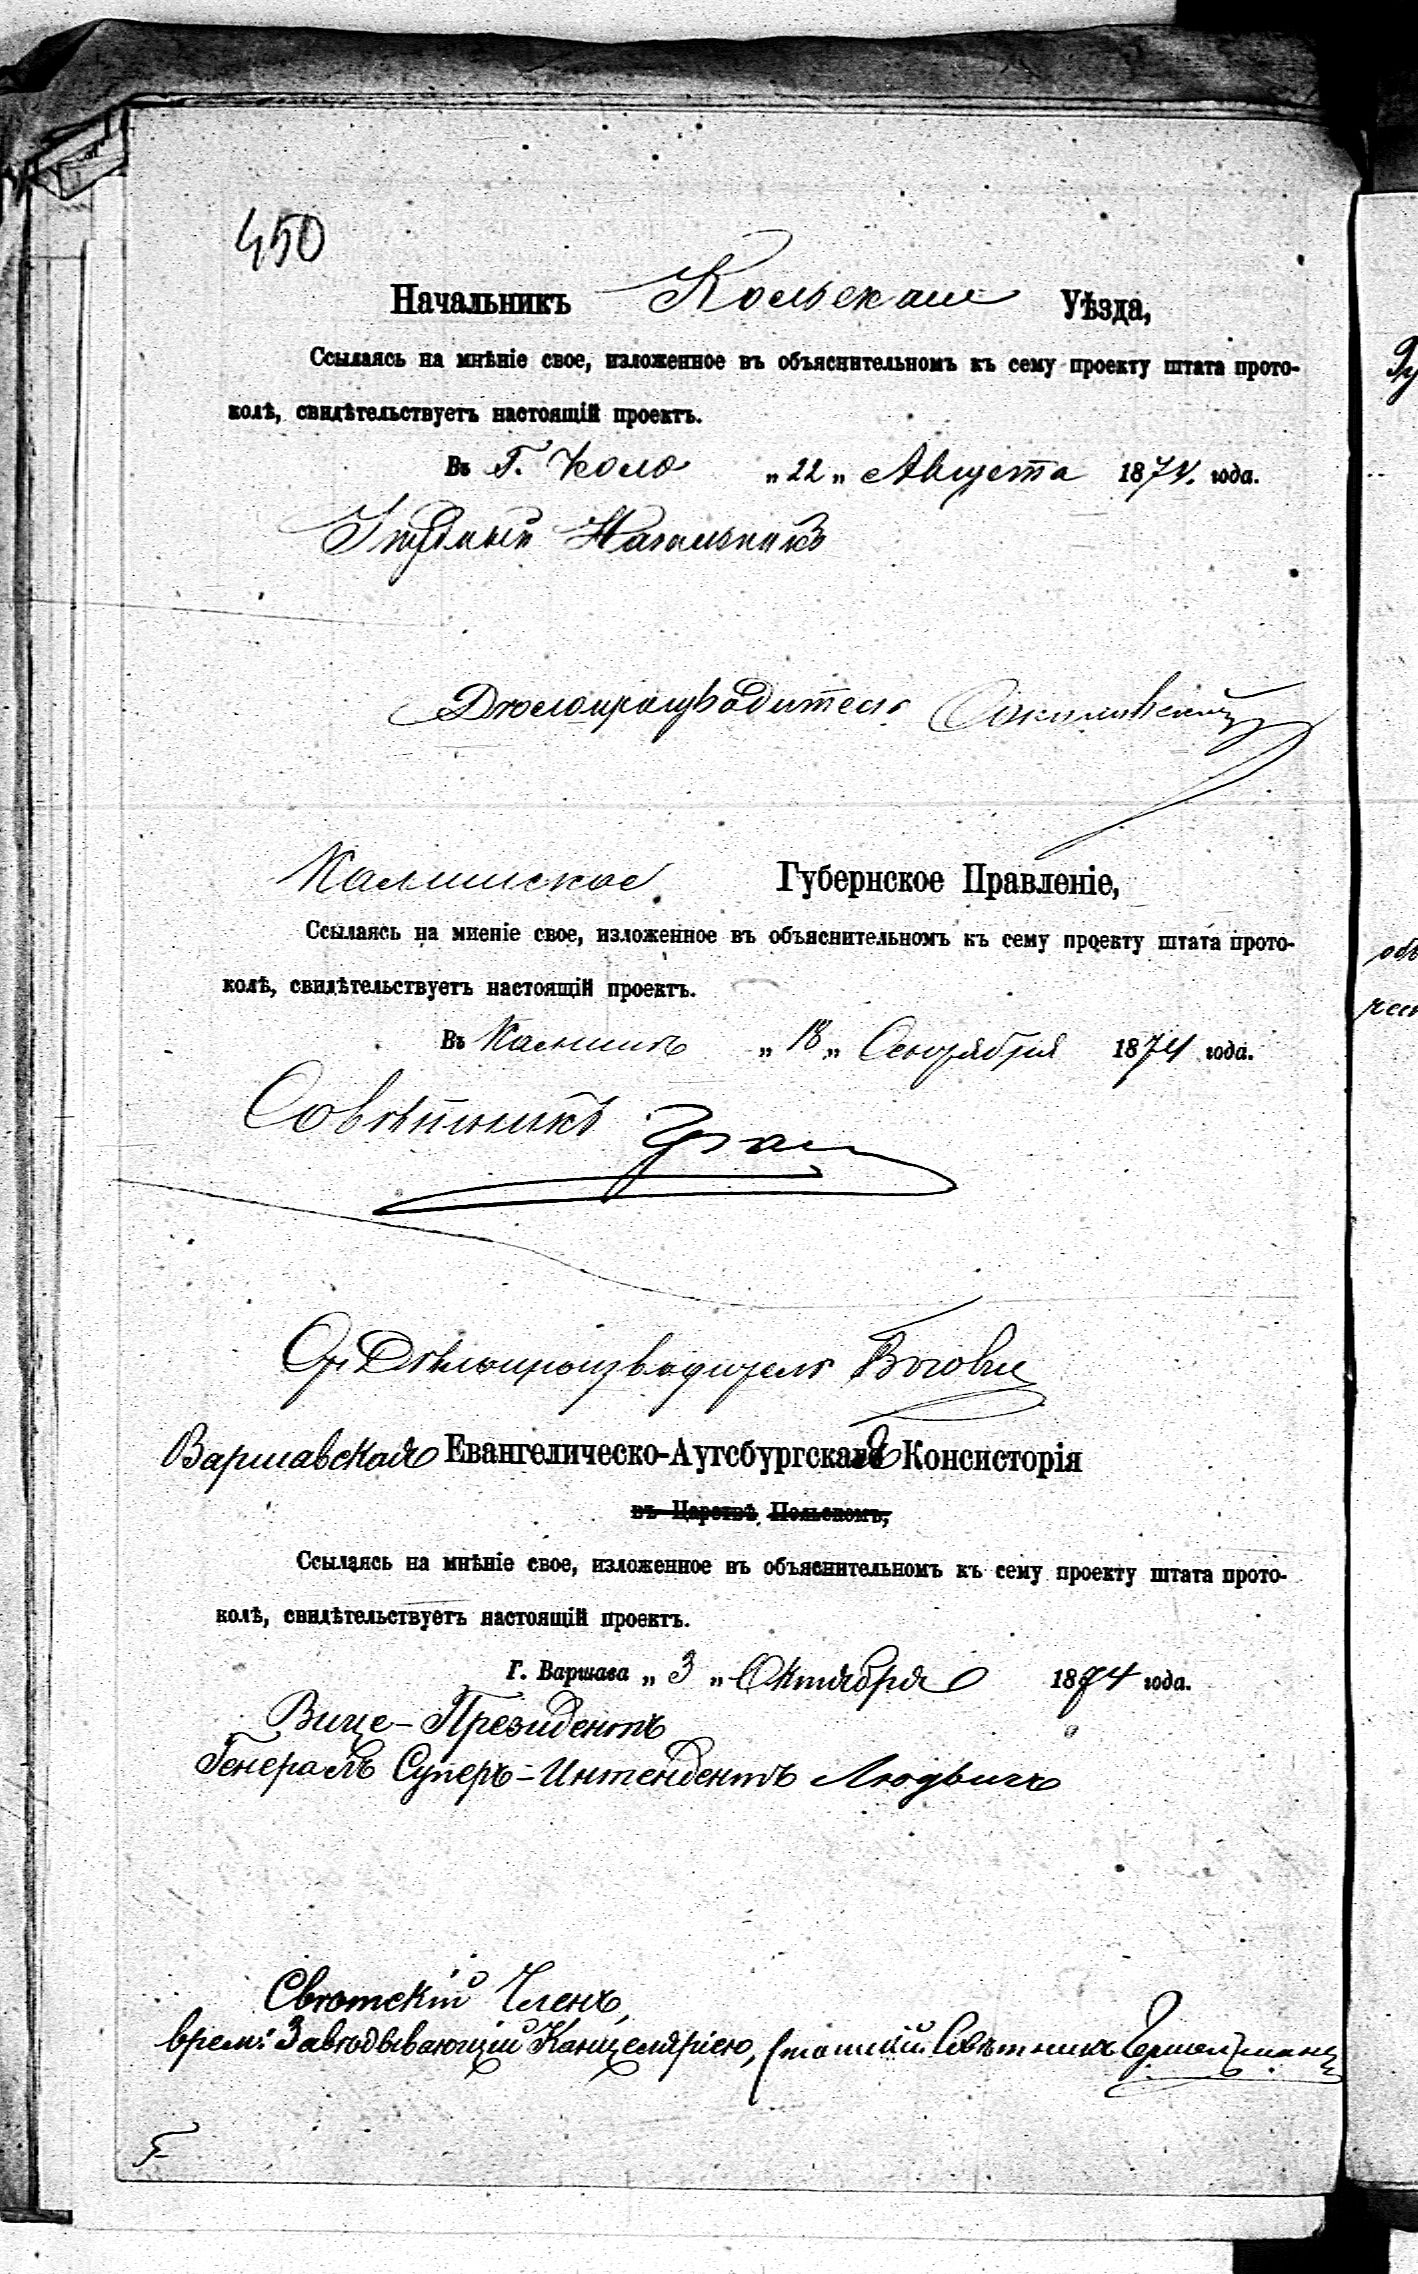 450
Начальникъ Кольскаго Уѣзда,
Ссылаясь на мнѣніе свое, изложенное въ объяснительномъ къ сему проекту штата прото-
колѣ, свидѣтельствуетъ настоящій проектъ.
Въ Г. Коло „22„ Августа 1874. года.
Начальникъ
Дѣлопроизводитель Соколовскій
Калишское Губернское Правленіе,
Ссылаясь на мненіе свое, изложенное въ объяснительномъ къ сему проекту штата прото-
колѣ, свидѣтельствуетъ настоящій проектъ.
Въ Калишѣ „18„ Сентября 1874 года.
Совѣтникъ
Дѣлопроизводитель
Варшавская Евангелическо-Аугсбургская Консисторія
въ Царствѣ Польскомъ,
Ссылаясь на мнѣніе свое, изложенное въ объяснительномъ къ сему проекту штата прото-
колѣ, свидѣтельствуетъ настоящій проектъ.
Г. Варшава „3„ Октября 1874 года.
Вице-Президентъ
Генералъ Суперъ-Интендентъ Людвигъ
Свѣтскій Членъ,
врем: Завѣдывающій Канцеляріею, Статскій Совѣтникъ